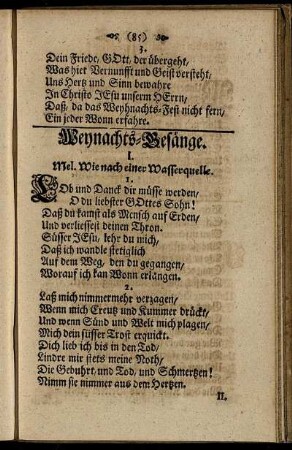 (85)
3.
Dein Friede, GOtt, der übergeht/
Was hier Vernunfft und Geist versteht/
Uns Hertz und Sinn bewahre
In Christo JEsu unserm HErrn/
Daß/ da das Weyhnachts-Fest nicht fern/
Ein jeder Wonn erfahre.
Weynachts-Gesänge.
I.
Mel. Wie nach einer Wasserquelle.
1.
LOb und Danck dir müsse werden/
O du liebster GOttes Sohn!
Daß du kamst als Mensch auf Erden/
Und verliessest deinen Thron.
Süsser JEsu/ lehr du mich/
Daß ich wandle stetiglich
Auf dem Weg, den du gegangen/
Worauf ich kan Wonn erlangen.
2.
Laß mich nimmermehr verzagen/
Wenn mich Creutz und Kummer drückt/
Und wenn Sünd und Welt mich plagen/
Mich dein süsser Trost erquickt.
Dich lieb ich bis in den Tod/
Lindre mir stets meine Noth/
Die Gebuhrt, und Tod, und Schmertzen!
Nimm sie nimmer aus dem Hertzen.
II.